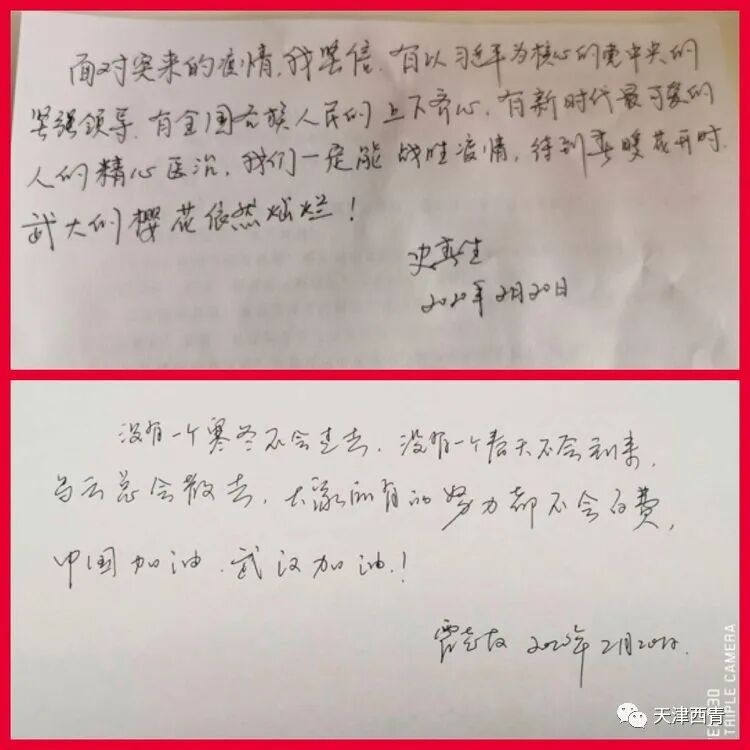 面对突来的疫情，我坚信，有以习近平为核心的党中央的
坚强领导，有全国各族人民的上下齐心，有新时代最可爱的
人的精心医治，我们一定能战胜疫情，待到春暖花开时，
武大的樱花依然灿烂！
史春生
2020年2月20日
没有一个寒冬不会过去，没有一个春天不会到来，
乌云总会散去，大家所有的努力都不会白费，
中国加油，武汉加油！
2020年2月20日.
天津西青
TRIPLE CAMERA